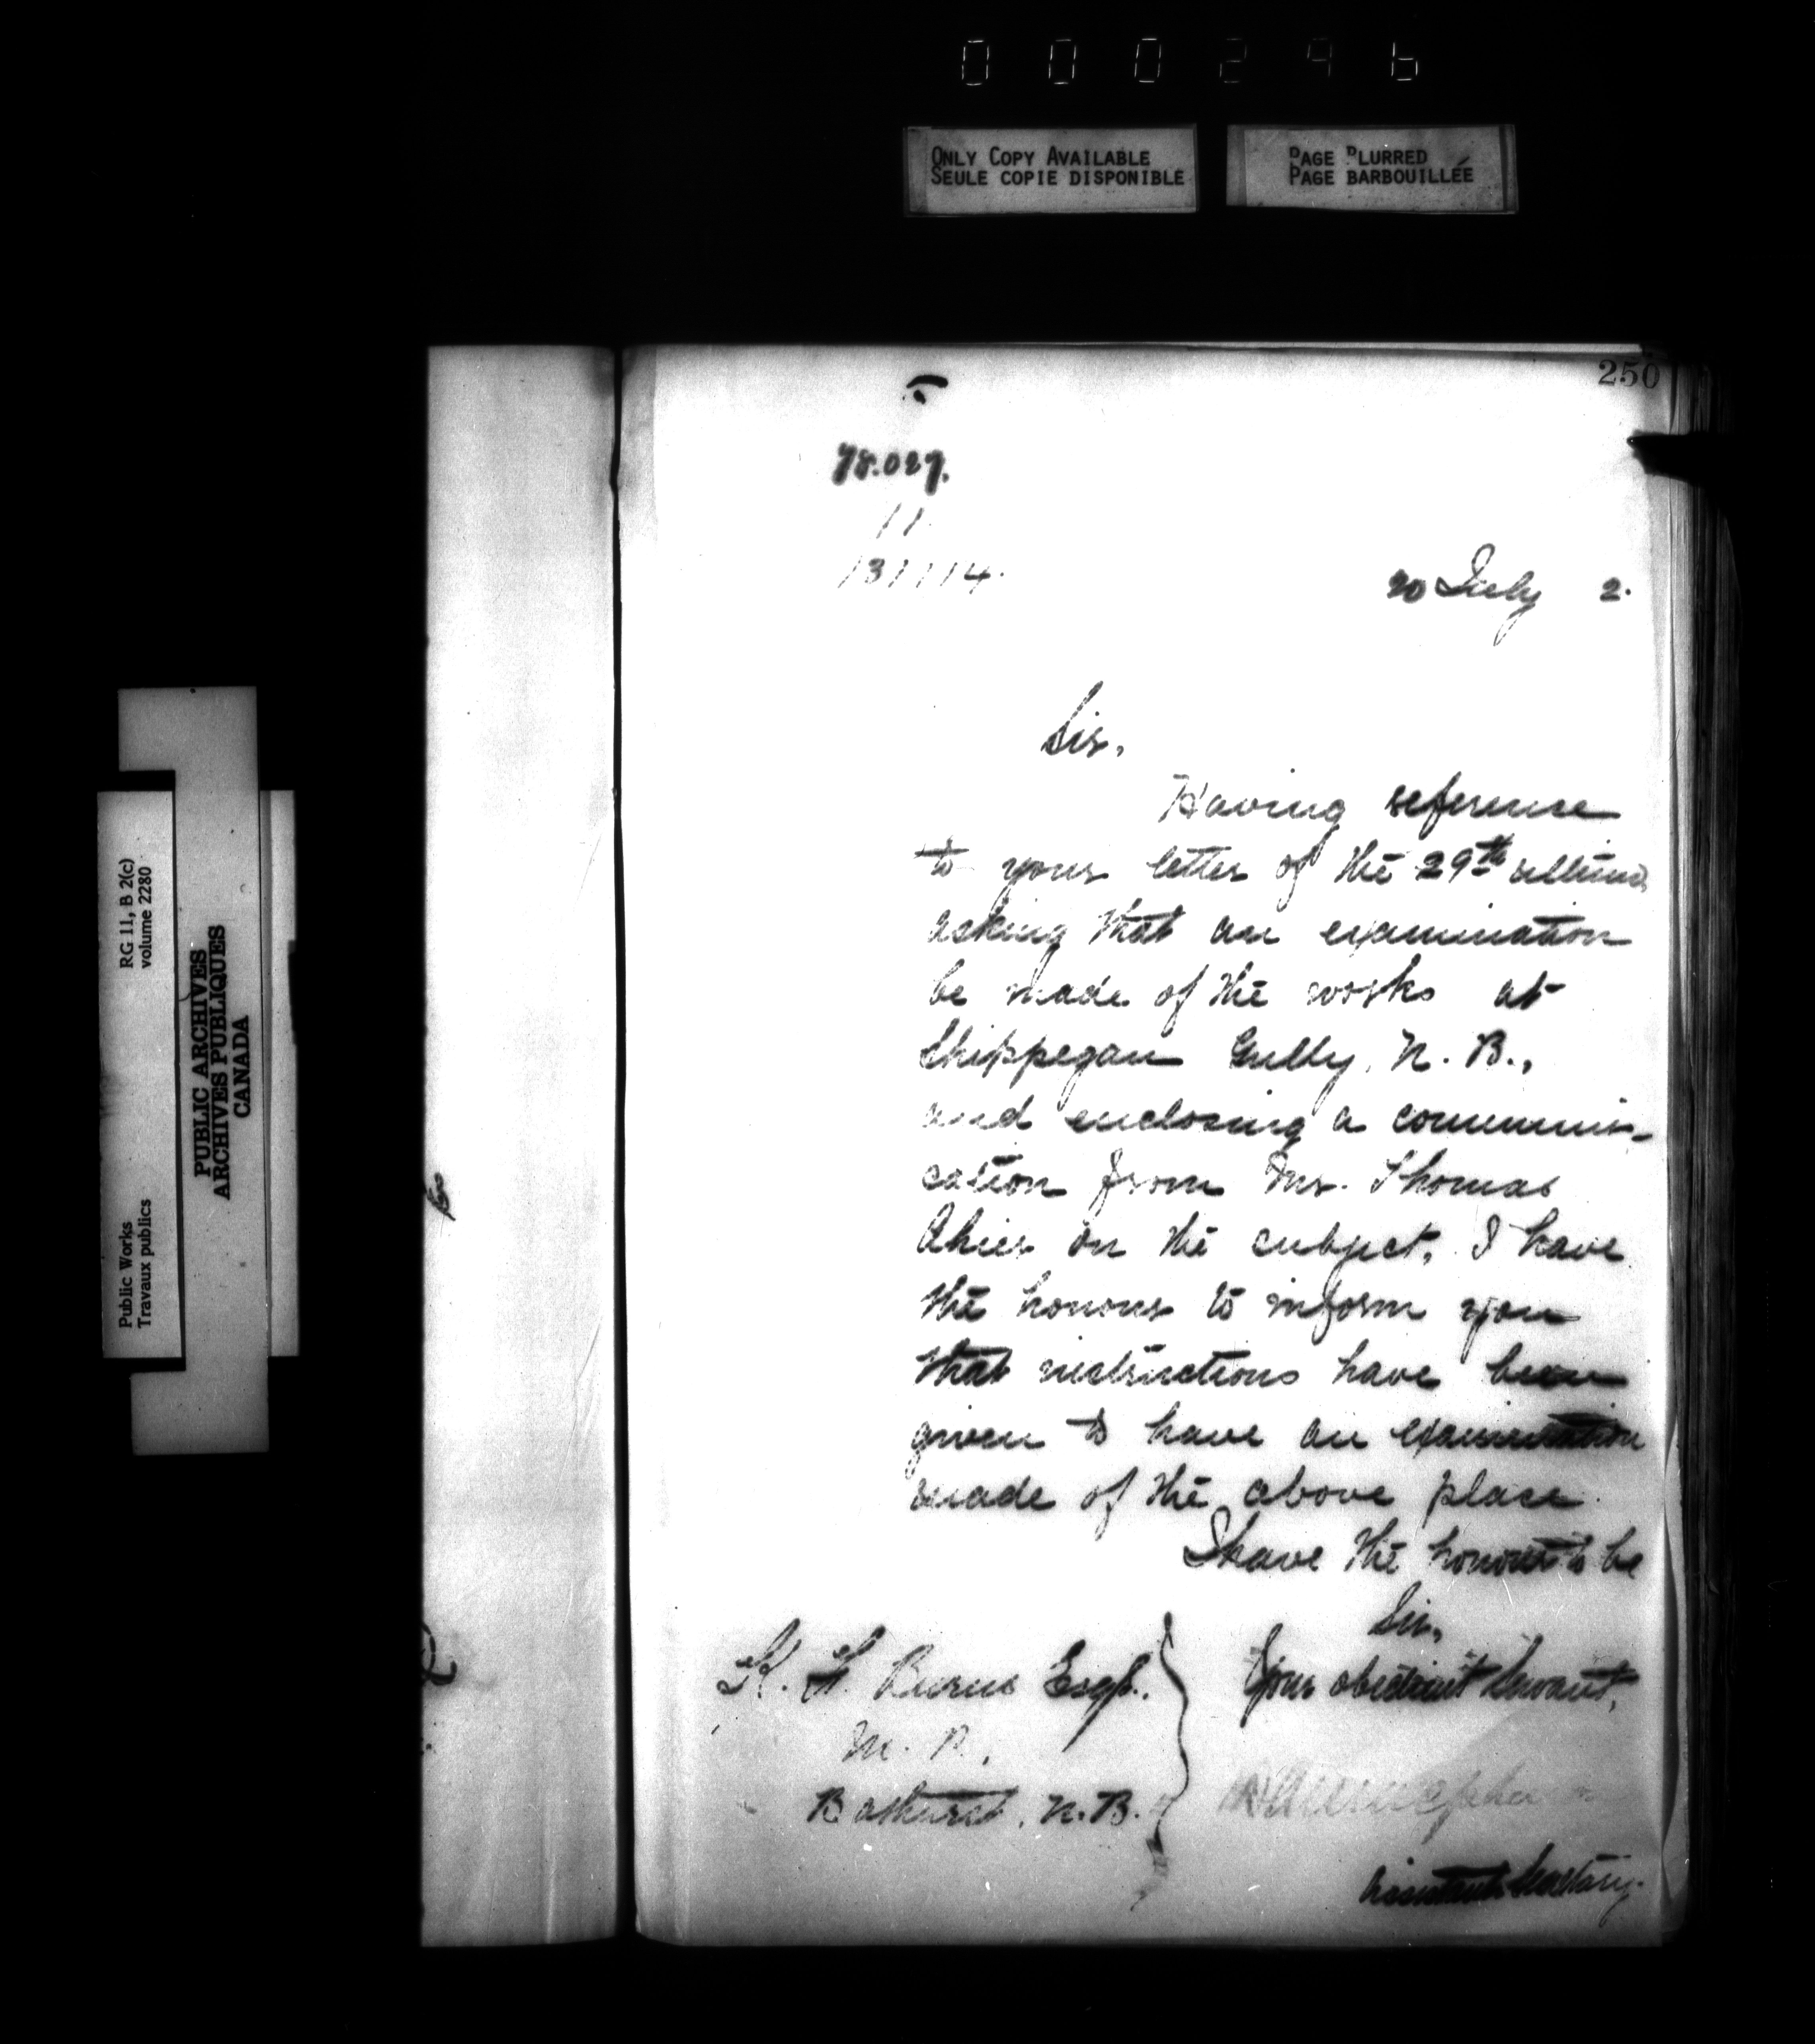 000296
ONLY COPY AVAILABLE
SEULE COPIE DISPONIBLE
PAGE BLURRED
PAGE BARBOUILLÉE
250
78.027.
11
131114.
20 July 2.
Sir,
Having reference
to your letter of the 29th ultimo,
asking that an examination
be made of the works at
Shippegan Gully, N. B.,
and enclosing a communi-
cation from Mr. Thomas
Ahier on the subject, I have
the honour to inform you
that instructions have been
given to have an examination
made of the above place.
I have the honour to be
Sir,
Your obedient Servant,
Assistant Secretary.
K. F. Burns Esq.,
M. P.,
Bathurst, N.B.
Public Works
Travaux publics
RG 11, B 2(c)
volume 2280
PUBLIC ARCHIVES
ARCHIVES PUBLIQUES
CANADA